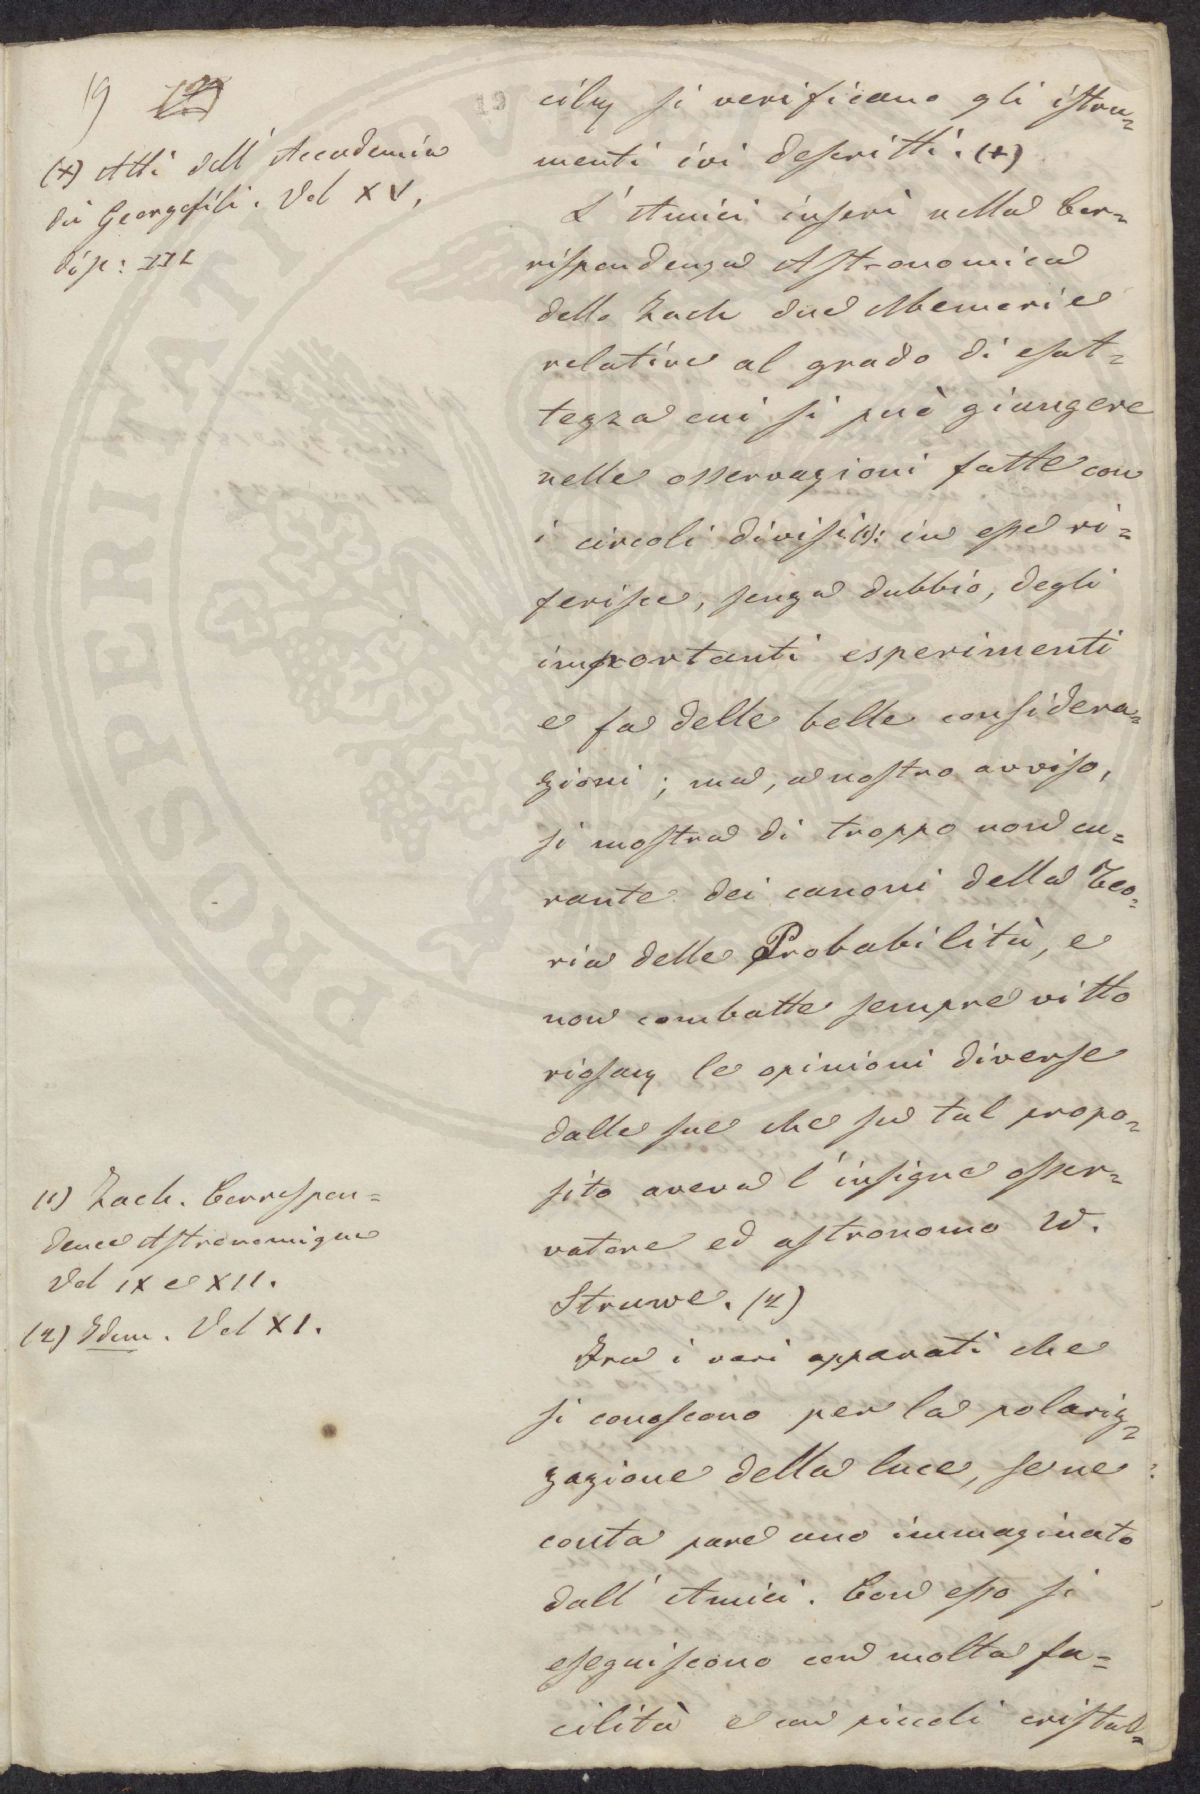 19
(*) Atti dell' Accademia
dei Georgofili. Vol XV,
disp: III
cibus si verificano gli istru=
menti ivi descritti. (*)
L' Amici inserì nella Cor=
rispondenza Astronomica
dello Zach due Memorie
relative al grado di esat=
tezza cui si può giungere
nelle osservazioni fatte con
i circoli divisi (1): in esse ri=
ferisce, senza dubbio, degli
importanti esperimenti
e fa delle belle considera=
zioni; ma, a nostro avviso,
si mostra di troppo non cu=
rante dei canoni della Teo=
ria delle Probabilità, e
non combatte sempre vitto
le opinioni diverse
dalle sue che su tal propo=
sito aveva l' insigne osser=
vatore ed astronomo W.
Struwe. (2)
Fra i vari apparati che
si conoscono per la polariz=
zazione della luce, se ne
conta pare uno immaginato
dall' Amici. Con esso si
eseguiscono con molta fa=
cilità e con piccoli cristal=
(1) Zach. Correspon=
dence Astronomique
Vol IX e XII.
(2) Idem. Vol XI.
PROSPERITATI